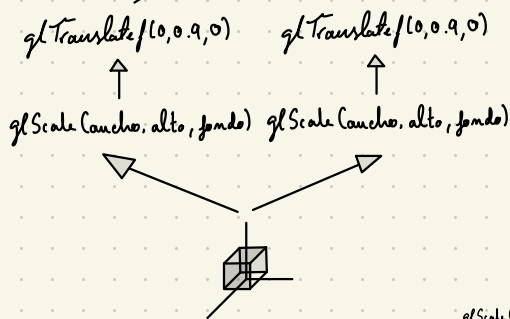 glTranslatef(0,0.9,0)
glTranslatef(0,0.9,0)
glScale(ancho, alto, fondo)
glScale(ancho, alto, fondo)
glScale(